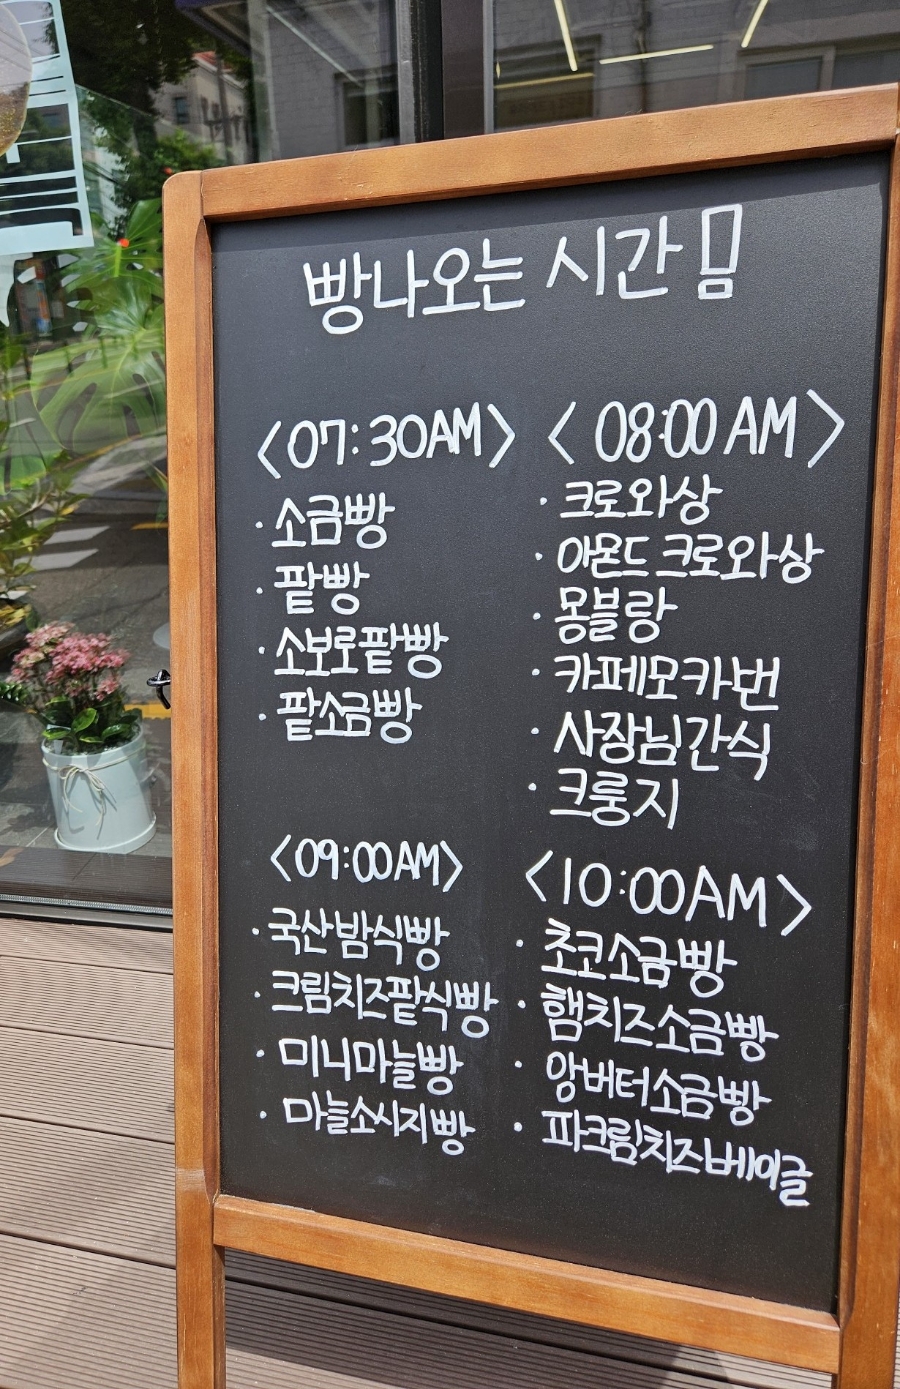 빵나오는 시간
<07:30AM>
· 소금빵
· 팥빵
· 소보로팥빵
· 팥소금빵
<08:00 AM>
· 크로와상
· 아몬드 크로와상
· 몽블랑
· 카페모카번
· 사장님간식
· 크룽지
<09:00AM>
· 국산밤식빵
· 크림치즈팥식빵
· 미니마늘빵
· 마늘소시지빵
<10:00AM>
· 초코소금빵
· 햄치즈소금빵
· 앙버터소금빵
· 파크림치즈베이글